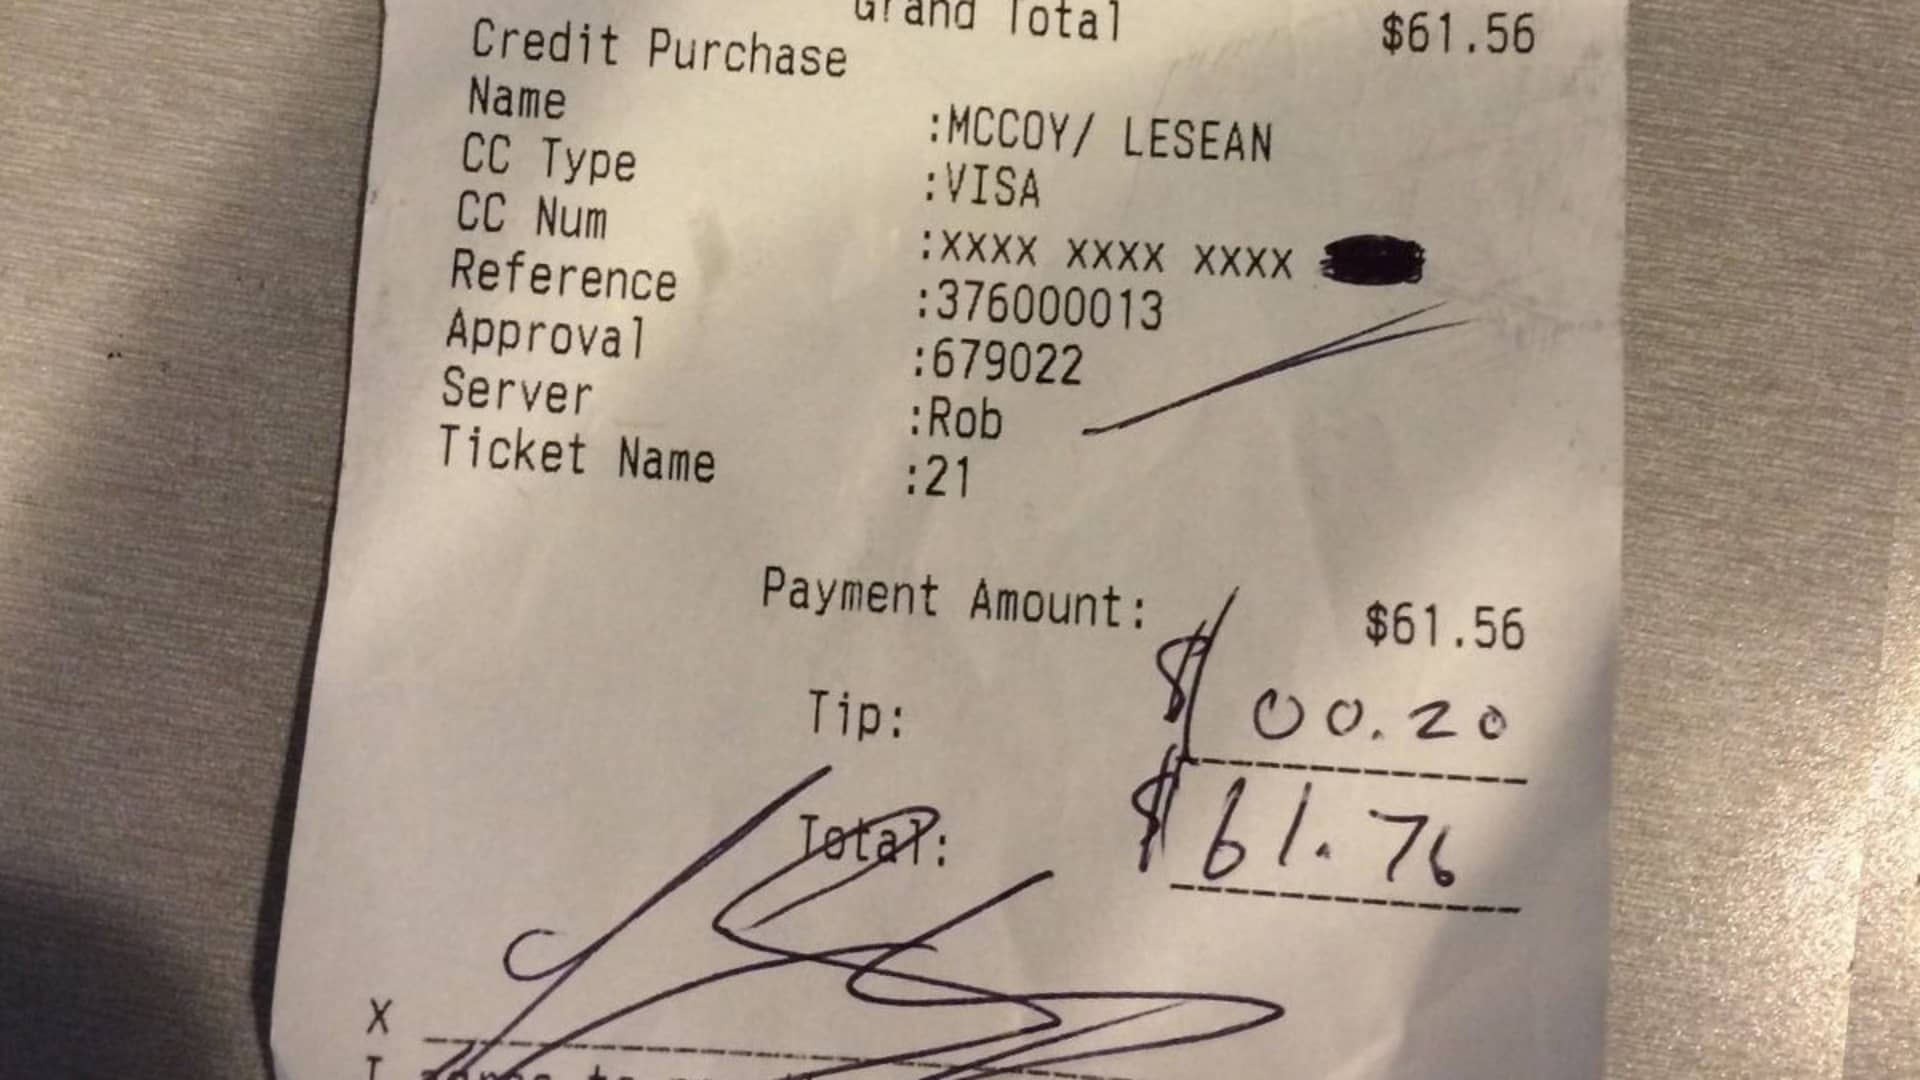 Grand Total $61.56
Credit Purchase
Name :MCCOY/ LESEAN
CC Type :VISA
CC Num :XXXX XXXX XXXX
Reference :376000013
Approval :679022
Server :Rob
Ticket Name :21
Payment Amount: $61.56
Tip: $ 00.20
Total: $ 61.76
X
I agree to